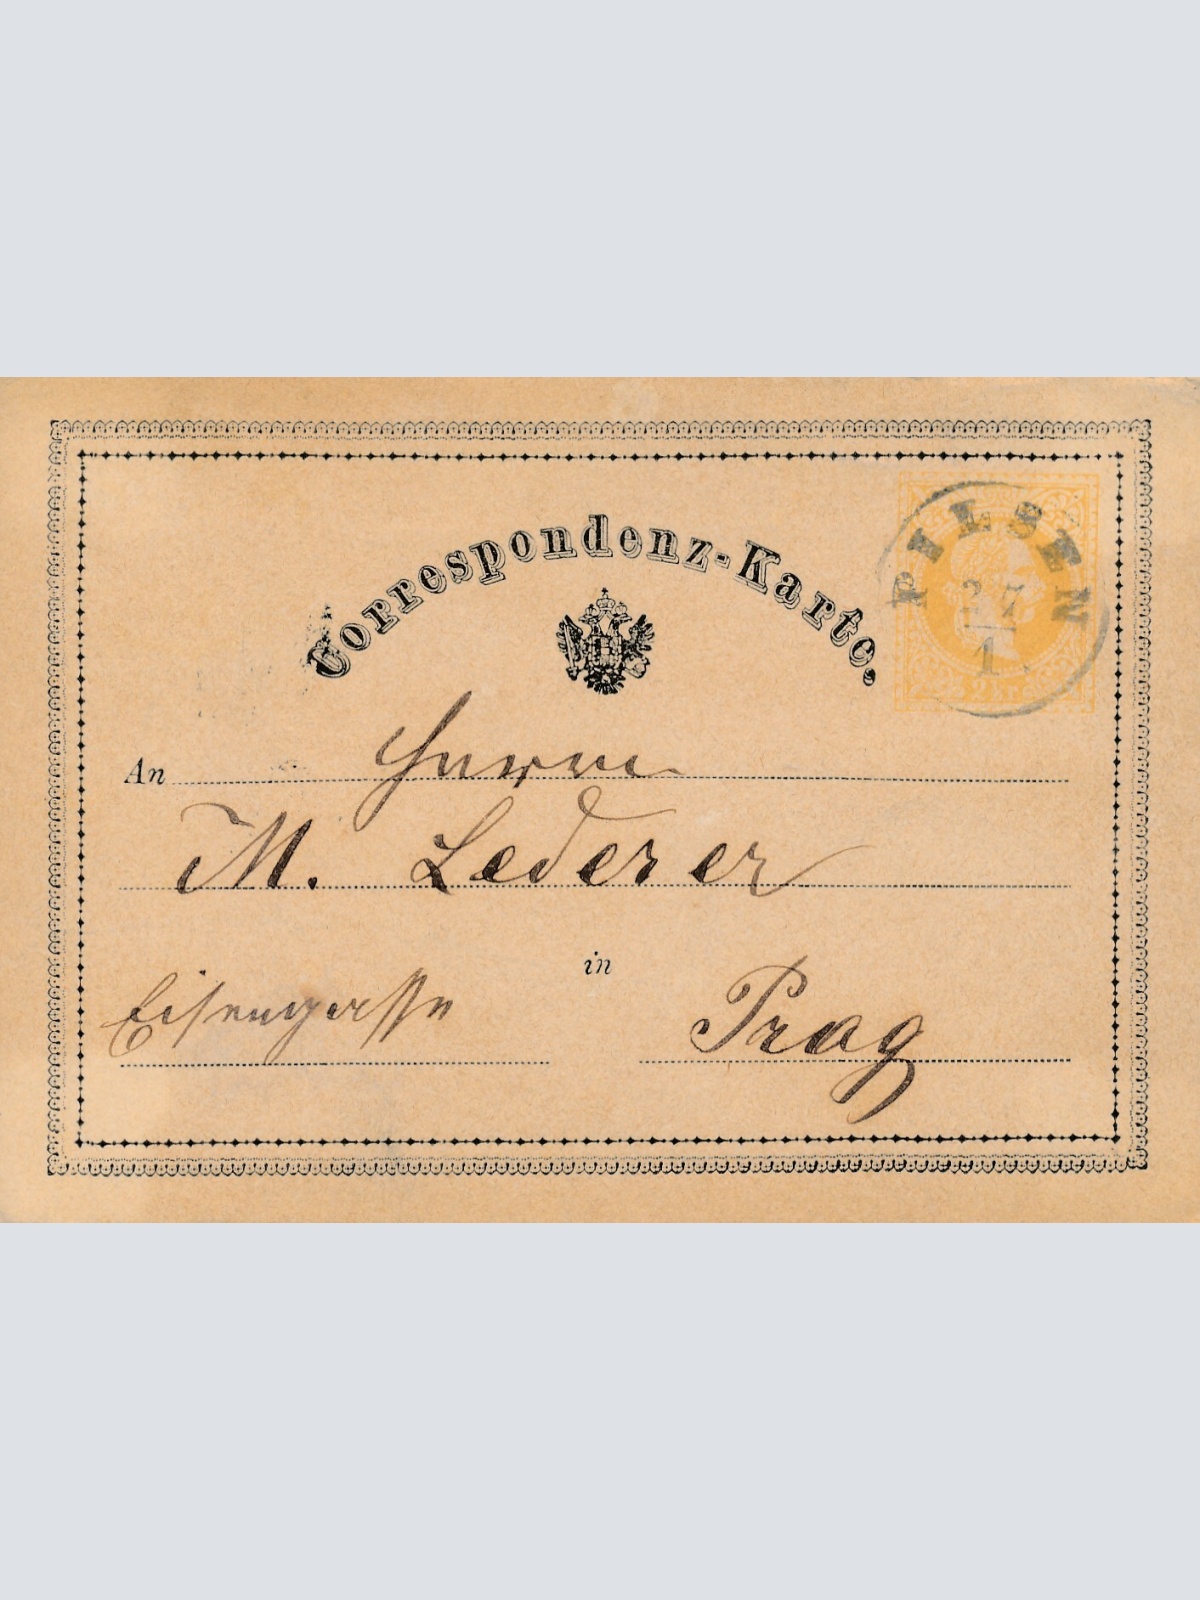 Correspondenz-Karte.
PILSEN
27
1
2 KR.
An Herrn
M. Lederer
in
Eisengasse Prag